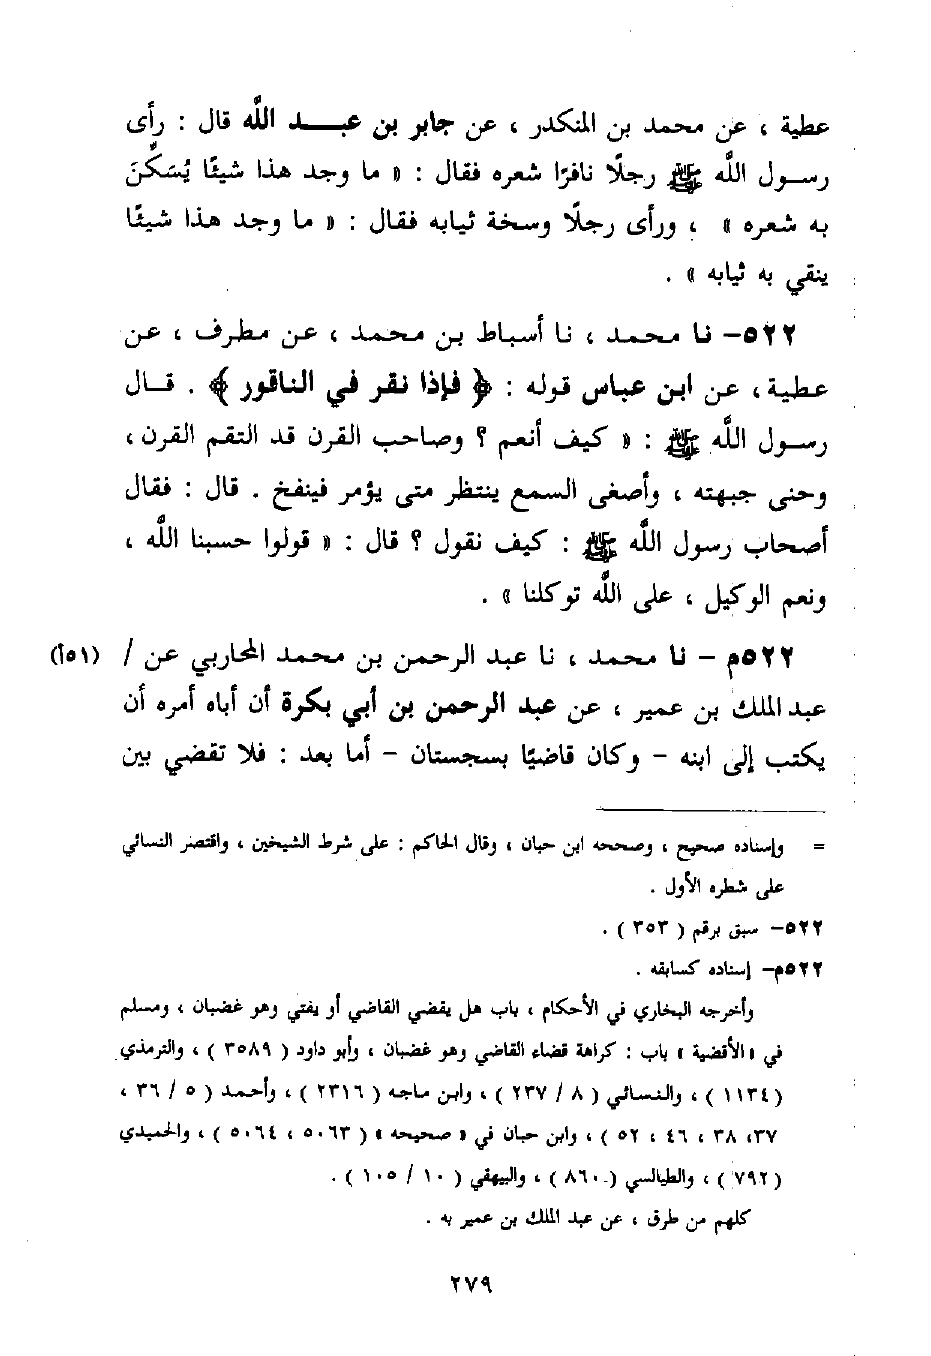 عطية ، عن محمد بن المنكدر ، عن جابر بن عبـــد اللَّه قال : رأى
رسـول اللَّه ﷺ رجلًا نافرًا شعره فقال : « ما وجد هذا شيئًا يُسَكِّنُ
به شعره » ، ورأى رجلًا وسخة ثيابه فقال : « ما وجد هذا شيئًا
ينقي به ثيابه » .
٥٢٢– نا محمد ، نا أسباط بن محمد ، عن مطرف ، عن
عطية ، عن ابن عباس قوله : ﴿ فإذا نقر في الناقور ﴾ . قـال
رسـول اللَّه ﷺ : « كيف أنعم ؟ وصاحب القرن قد التقم القرن ،
وحنى جبهته ، وأصغى السمع ينتظر متى يؤمر فينفخ . قال : فقال
أصحاب رسول اللَّه ﷺ : كيف نقول ؟ قال : « قولوا حسبنا اللَّه ،
ونعم الوكيل ، على اللَّه توكلنا » .
٥٢٢م – نا محمد ، نا عبد الرحمن بن محمد المحاربي عن / (٥١أ)
عبد الملك بن عمير ، عن عبد الرحمن بن أبي بكرة أن أباه أمره أن
يكتب إلى ابنه – وكان قاضيًا بسجستان – أما بعد : فلا تقضي بين
= وإسناده صحيح ، وصححه ابن حبان ، وقال الحاكم : على شرط الشيخين ، واقتصر النسائي
على شطره الأول .
٥٢٢– سبق برقم ( ٣٥٣ ) .
٥٢٢م– إسناده كسابقه .
وأخرجه البخاري في الأحكام ، باب هل يقضي القاضي أو يفتي وهو غضبان ، ومسلم
في « الأقضية » باب : كراهة قضاء القاضي وهو غضبان ، وأبو داود ( ٣٥٨٩ ) ، والترمذي
( ١١٣٤ ) ، والنسائي ( ٨ / ٢٣٧ ) ، وابن ماجه ( ٢٣١٦ ) ، وأحمد ( ٥ / ٣٦ ،
٣٧ ، ٣٨ ، ٤٦ ، ٥٢ ) ، وابن حبان في « صحيحه » ( ٥٠٦٣ ، ٥٠٦٤ ) ، والحميدي
( ٧٩٢ ) ، والطيالسي ( ٨٦٠ ) ، والبيهقي ( ١٠ / ١٠٥ ) .
كلهم من طرق ، عن عبد الملك بن عمير به .
٢٧٩